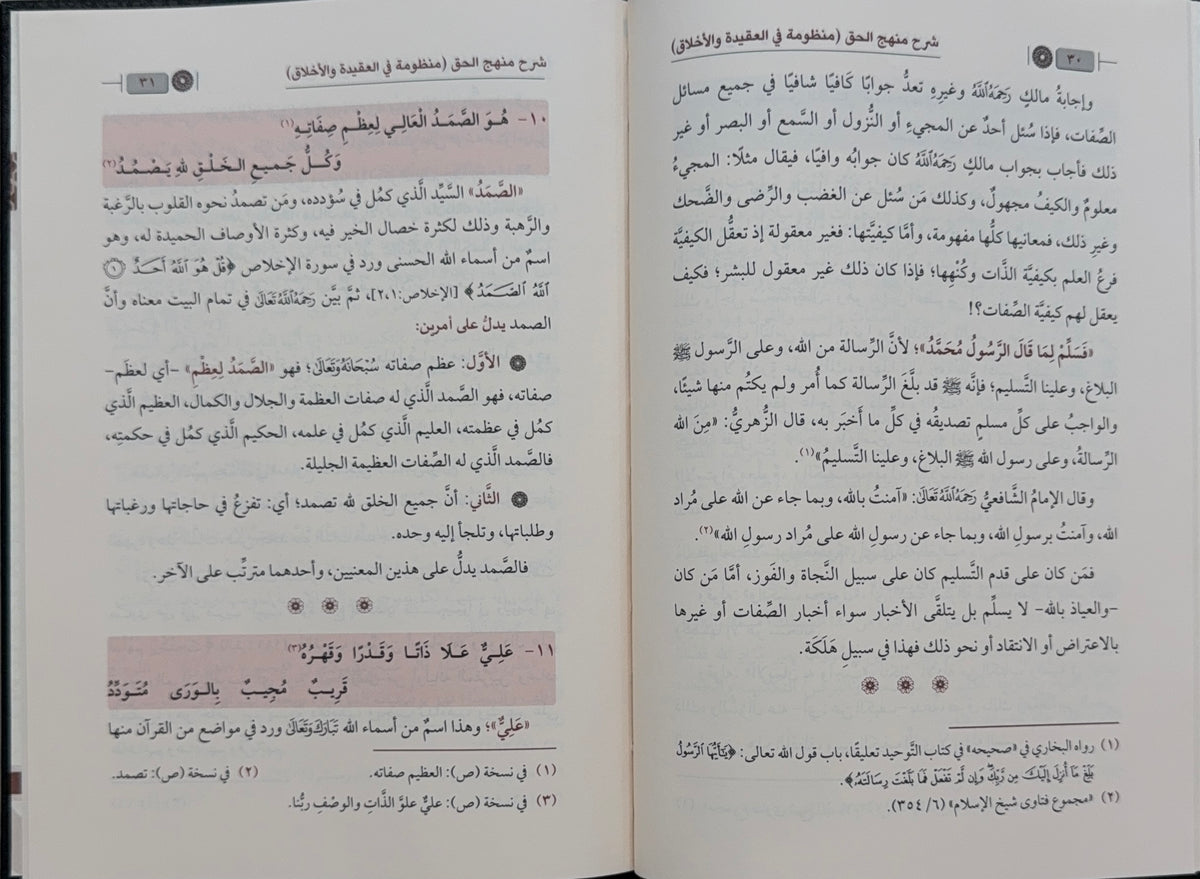 شرح منهج الحق (منظومة في العقيدة والأخلاق)
٣٠
وإجابةُ مالكٍ رَحِمَهُ اللَّهُ وغيرِهِ تعدُّ جوابًا كَافيًا شافيًا في جميع مسائل
الصِّفات، فإذا سُئل أحدٌ عن المجيءِ أو النُّزول أو السَّمع أو البصر أو غير
ذلك فأجاب بجواب مالكٍ رَحِمَهُ اللَّهُ كان جوابُه وافيًا، فيقال مثلًا: المجيءُ
معلومٌ والكيفُ مجهولٌ، وكذلك مَن سُئل عن الغضب والرِّضى والضَّحك
وغيرِ ذلك، فمعانيها كلُّها مفهومة، وأمَّا كيفيَّتها: فغير معقولة إذ تعقُّل الكيفيَّة
فرعُ العلم بكيفيَّة الذَّات وكُنْهِها؛ فإذا كان ذلك غير معقول للبشر؛ فكيف
يعقل لهم كيفيَّة الصِّفات؟!
«فَسَلِّمْ لِمَا قَالَ الرَّسُولُ مُحَمَّدُ»؛ لأنَّ الرِّسالة من الله، وعلى الرَّسول ﷺ
البلاغ، وعلينا التَّسليم؛ فإنَّه ﷺ قد بلَّغَ الرِّسالة كما أُمر ولم يكتُم منها شيئًا،
والواجبُ على كلِّ مسلمٍ تصديقُه في كلِّ ما أَخبَر به، قال الزُّهريُّ: «مِنَ الله
الرِّسالةُ، وعلى رسول الله ﷺ البلاغ، وعلينا التَّسليمُ»(١).
وقال الإمامُ الشَّافعيُّ رَحِمَهُ اللَّهُ تَعَالَى: «آمنتُ بالله، وبما جاء عن الله على مُراد
الله، وآمنتُ برسولِ الله، وبما جاء عن رسولِ الله على مُراد رسولِ الله»(٢).
فمَن كان على قدم التَّسليم كان على سبيل النَّجاة والفَوز، أمَّا مَن كان
-والعياذ بالله- لا يسلِّم بل يتلقَّى الأخبار سواء أخبار الصِّفات أو غيرها
بالاعتراض أو الانتقاد أو نحو ذلك فهذا في سبيلِ هَلَكَة.
(١) رواه البخاري في «صحيحه» في كتاب التَّوحيد تعليقًا، باب قول الله تعالى: ﴿يَٰٓأَيُّهَا ٱلرَّسُولُ
بَلِّغۡ مَآ أُنزِلَ إِلَيۡكَ مِن رَّبِّكَۖ وَإِن لَّمۡ تَفۡعَلۡ فَمَا بَلَّغۡتَ رِسَالَتَهُۥ﴾.
(٢) «مجموع فتاوى شيخ الإسلام» (٦/ ٣٥٤).
شرح منهج الحق (منظومة في العقيدة والأخلاق)
٣١
١٠- هُوَ الصَّمَدُ الْعَالِي لِعِظْمِ صِفَاتِهِ(١)
وَكُلُّ جَمِيعِ الخَلْقِ للهِ يَصْمُدُ(٢)
«الصَّمَدُ» السَّيِّد الَّذي كمُل في سُؤدده، ومَن تصمدُ نحوه القلوب بالرَّغبة
والرَّهبة وذلك لكثرة خصال الخير فيه، وكثرة الأوصاف الحميدة له، وهو
اسمٌ من أسماء الله الحسنى ورد في سورة الإخلاص ﴿قُلۡ هُوَ ٱللَّهُ أَحَدٌ ١
ٱللَّهُ ٱلصَّمَدُ﴾ [الإخلاص:٢،١]، ثمَّ بيَّن رَحِمَهُ اللَّهُ تَعَالَى في تمام البيت معناه وأنَّ
الصمد يدلُّ على أمرين:
الأوَّل: عظم صفاته سُبْحَانَهُ وَتَعَالَى؛ فهو «الصَّمَدُ لِعِظْمِ» -أي لعظَم-
صفاته، فهو الصَّمد الَّذي له صفات العظمة والجلال والكمال، العظيم الَّذي
كمُل في عظمته، العليم الَّذي كمُل في علمه، الحكيم الَّذي كمُل في حكمتِه،
فالصَّمد الَّذي له الصِّفات العظيمة الجليلة.
الثَّاني: أنَّ جميع الخلق لله تصمد؛ أي: تفزعُ في حاجاتها ورغباتها
وطلباتها، وتلجأ إليه وحده.
فالصَّمد يدلُّ على هذين المعنيين، وأحدهما مترتِّب على الآخر.
١١- عَلِيٌّ عَلَا ذَاتًا وَقَدْرًا وَقَهْرُهُ(٣)
قَرِيبٌ مُجِيبٌ بِالوَرَى مُتَوَدِّدُ
«عَلِيٌّ»؛ وهذا اسمٌ من أسماء الله تَبَارَكَ وَتَعَالَى ورد في مواضع من القرآن منها
(١) في نسخة (ص): العظيم صفاته. (٢) في نسخة (ص): تصمد.
(٣) في نسخة (ص): عليٌّ علوَّ الذَّاتِ والوصْفِ ربُّنا.